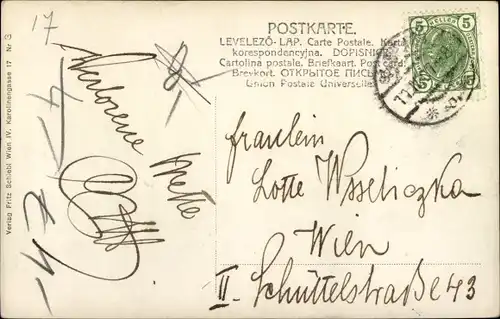 POSTKARTE.
LEVELEZŐ-LAP. Carte Postale. Karta
korespondencyjna. DOPISNICE.
Cartolina postale. Briefkaart. Post card.
Brevkort. ОТКРЫТОЕ ПИСЬ
Union Postale Universelle.
5 5
5 5
17
Verlorene Wette
Fräulein
Lotte Wsseliczka
Wien
II. Schüttelstraße 43
Verlag Fritz Schiebl Wien IV. Karolinengasse 17 Nr 3